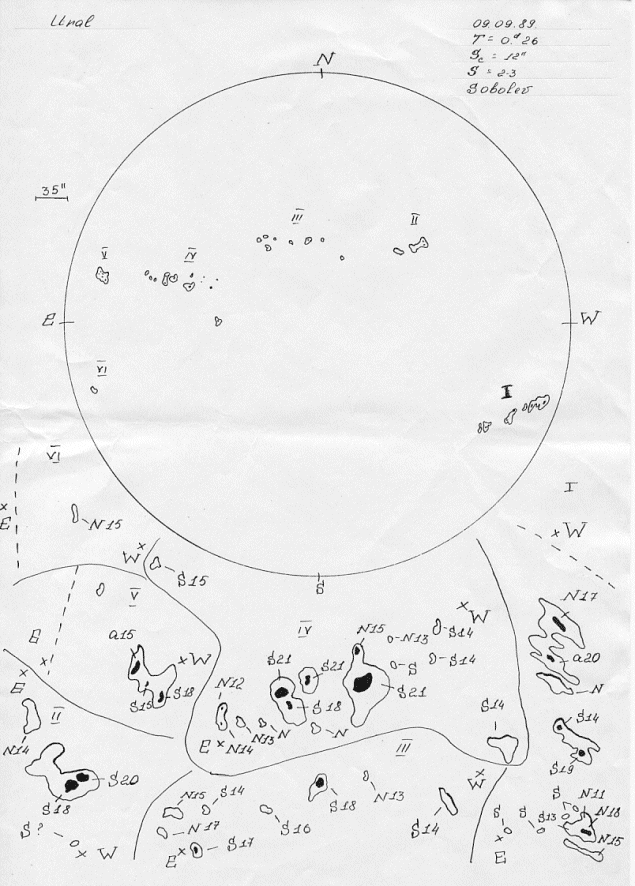 Ural
09.09.89.
T = 0.ᵈ26
S꜀ = 12"
S = 2-3
Sobolev
N
35"
III
II
V
IV
E
W
VI
I
S
VI
I
E
N15
W
W
S15
V
IV
N17
W
E
a15
W
N15
N13
S14
a20
S21
S21
S
S14
E
S15
S18
N12
S18
S21
N
II
S14
S14
N14
E
N14
N13
N
N
III
S19
S20
W
S18
N15
S14
S18
N13
S
N11
S?
N17
S16
S14
S
S13
N18
W
E
S17
E
N15